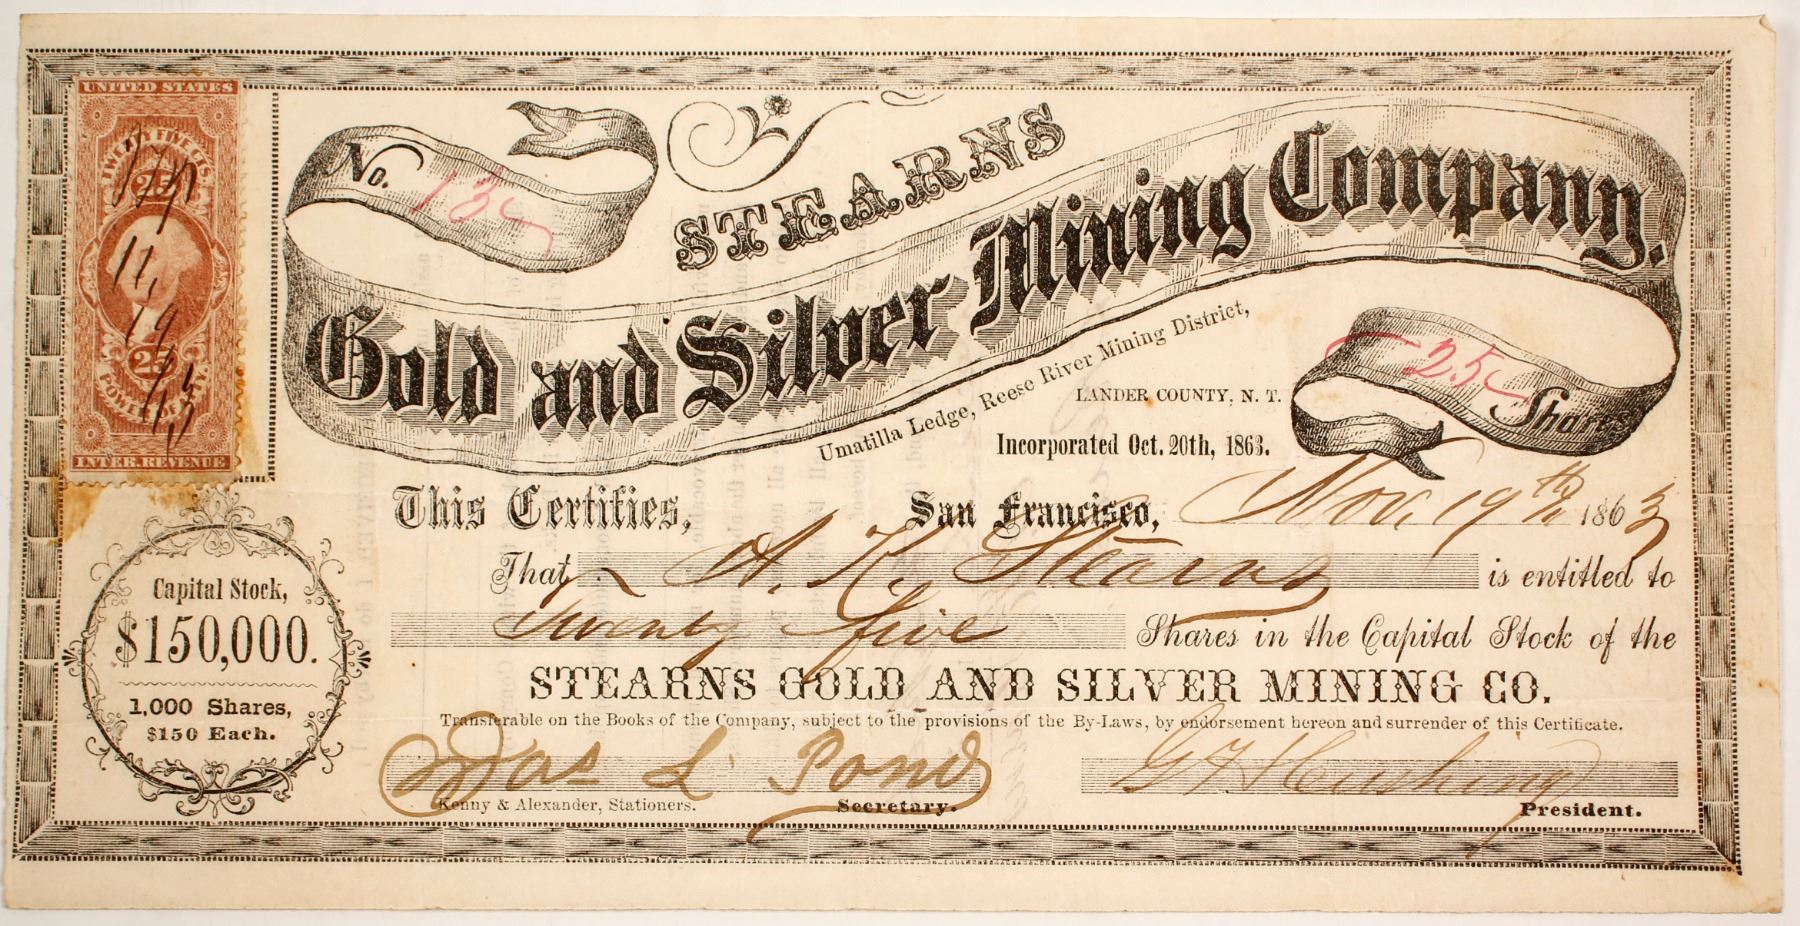 UNITED STATES
TWENTY FIVE CTS.
25
11,
19
25
63
POWER OF ATT'Y.
INTER. REVENUE
No. 13
STEARNS
Gold and Silver Mining Company.
Umatilla Ledge, Reese River Mining District,
LANDER COUNTY, N. T.
Incorporated Oct. 20th, 1863.
25 Shares
This Certifies, San Francisco, Nov. 19th 1863
That A. K. Stearns is entitled to
Twenty five Shares in the Capital Stock of the
STEARNS GOLD AND SILVER MINING CO.
Transferable on the Books of the Company, subject to the provisions of the By-Laws, by endorsement hereon and surrender of this Certificate.
Capital Stock,
$150,000.
1,000 Shares,
$150 Each.
Jas L Pond
Kenny & Alexander, Stationers. Secretary.
Cushing
President.